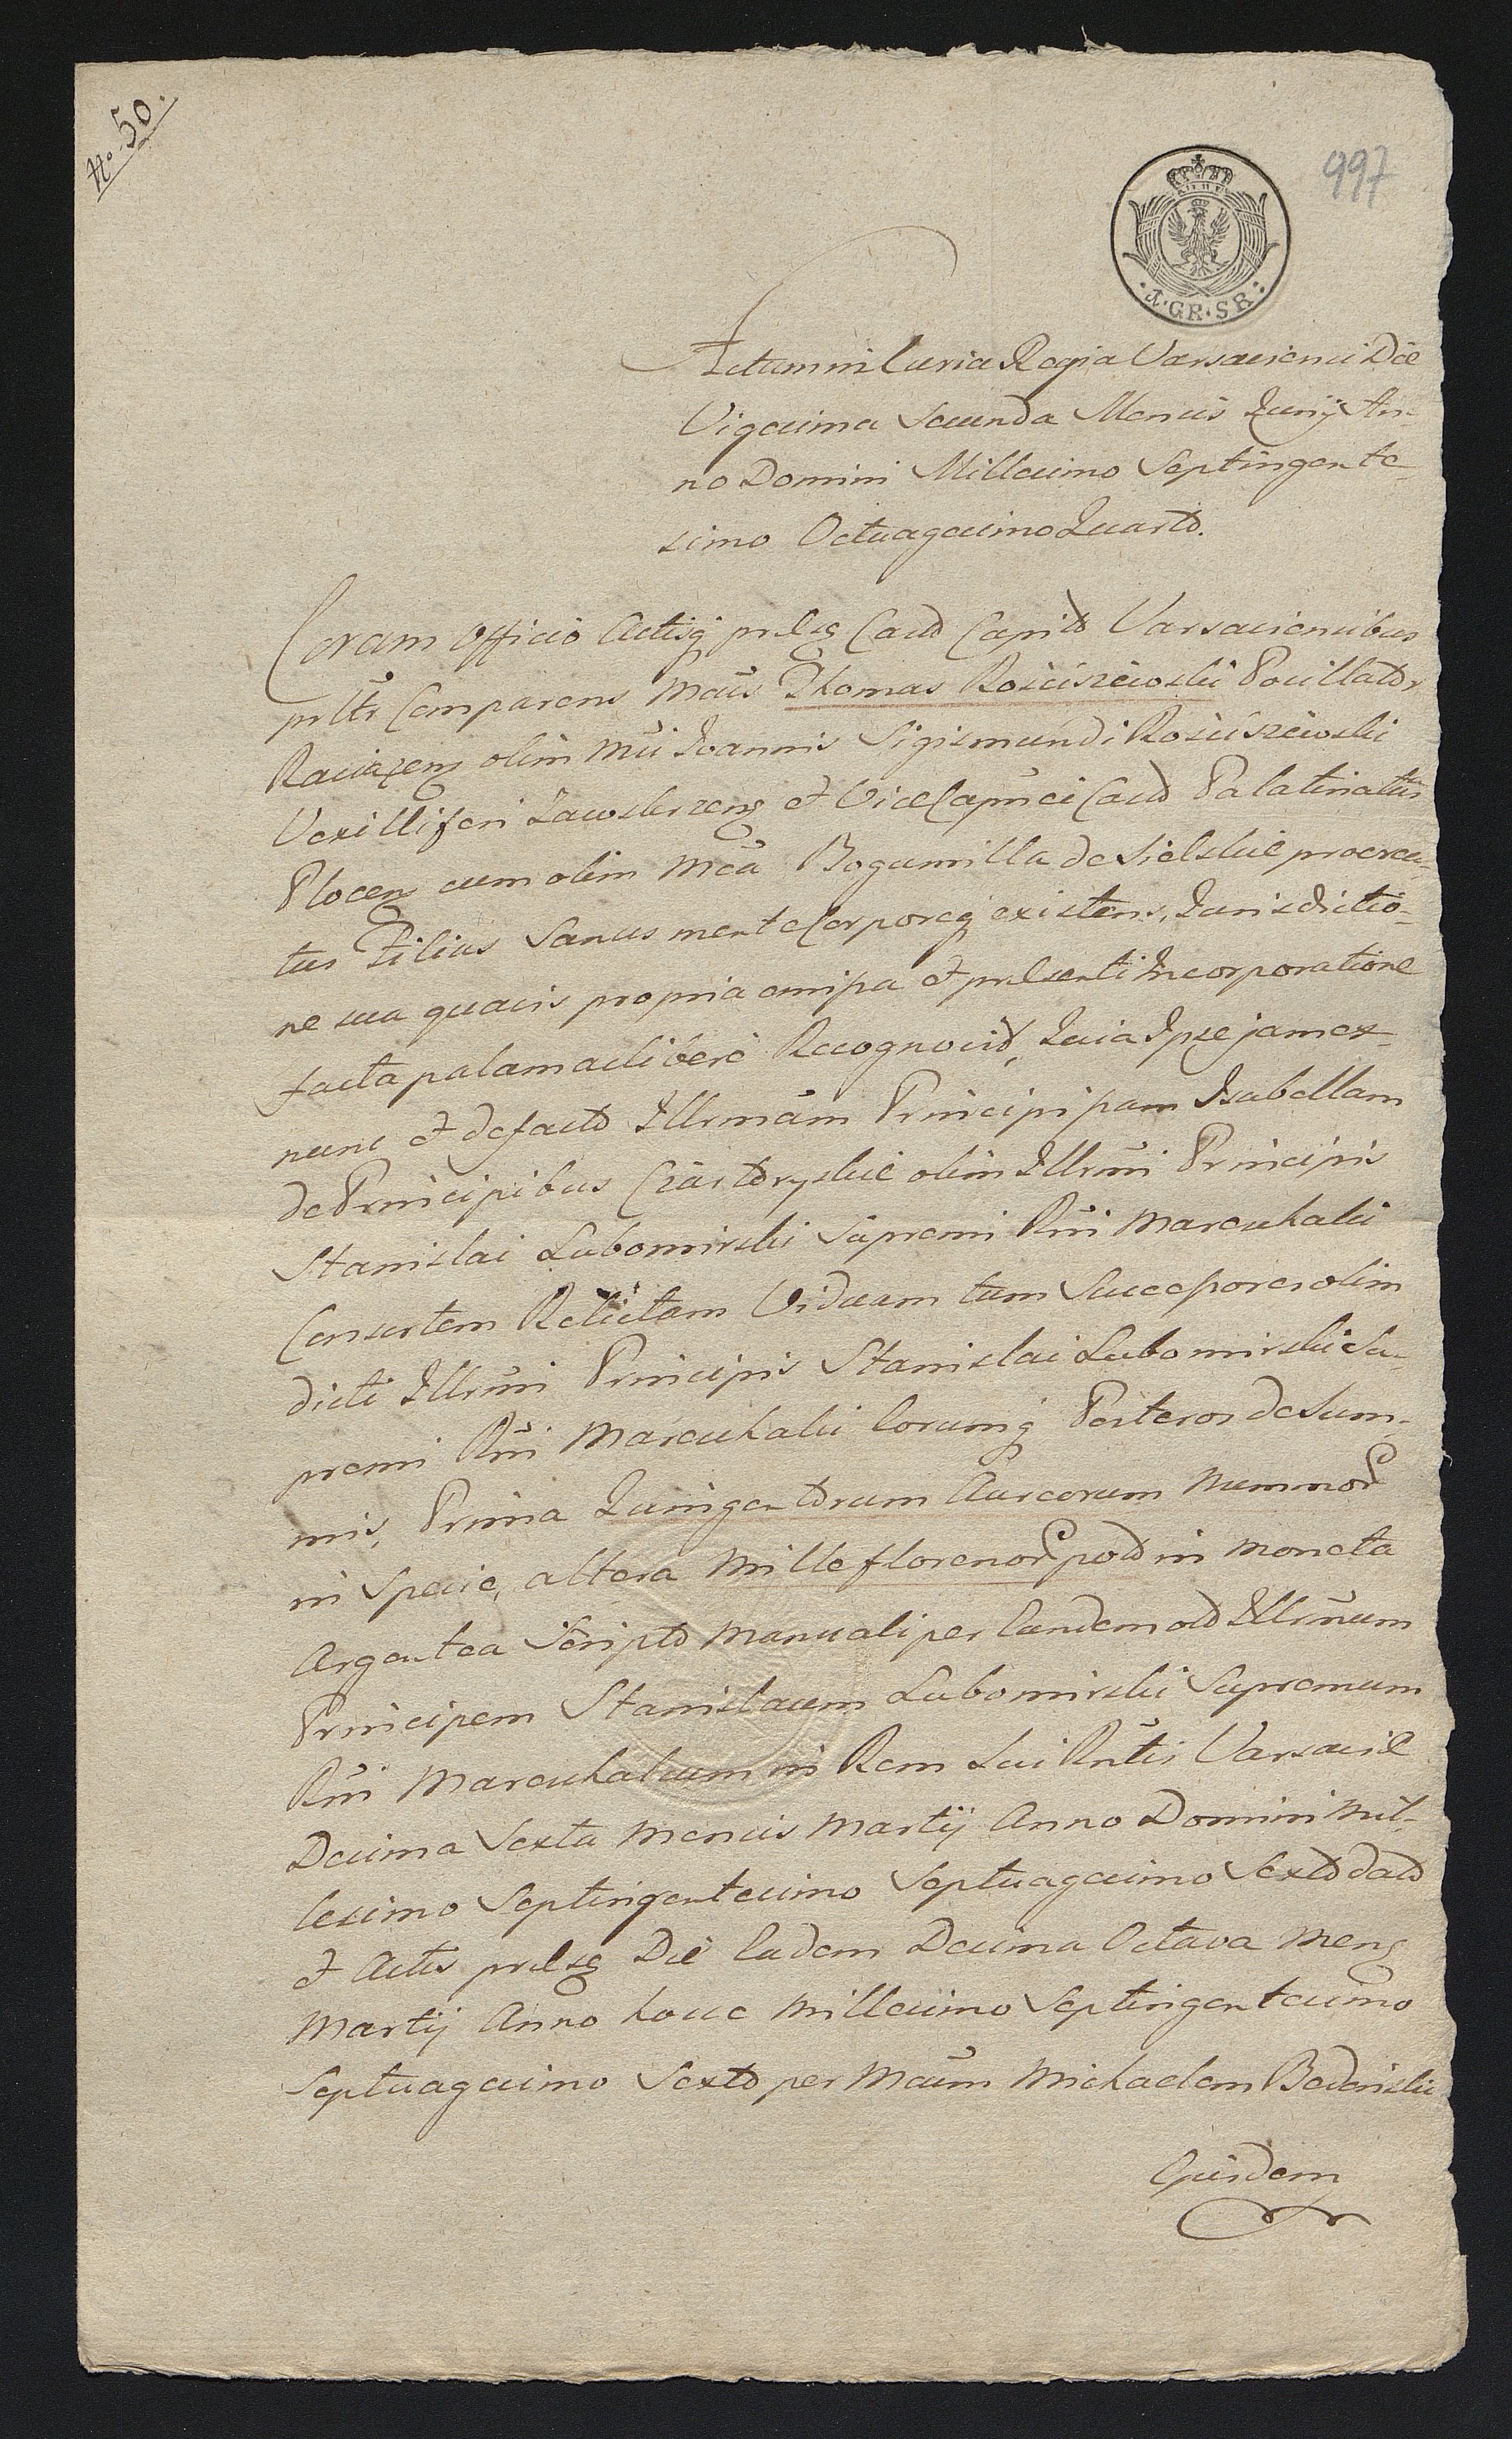 No. 50.
997
GR·SR
Actum in Curia Regia Varsaviensi Die
Vigesima Secunda Mensis Junij An-
no Domini Millesimo Septingente-
simo Octuagesimo Quarto.
Coram Officio Actisq prlbs Castr Capitl Varsaviensibus
prltr Comparens Mgcus Thomas Rościszewski Pocillator
Raciązens olim Mci Joannis Sigismundi Rościszewski
Vexilliferi Zawskrzens et Vice Capnei Castr Palatinatus
Plocens cum olim Mca Bogumilla de Sielskie procrea-
tus Filius Sanus mente Corporeq existens, Jurisdictio-
ne sua quavis propria omissa et praesenti Incorporatione
facta palam ac libere Recognovit, Quia Ipse jam ex
nunc et de facto Illrmam Principissam Isabellam
de Principibus Czartoryskie olim Illrmi Principis
Stanislai Lubomirski Supremi Rni Mareschalci
Consortem Relictam Viduam tum Successores olim
dicti Illrmi Principis Stanislai Lubomirski Su-
premi Rni Mareschalci Eorumq Posteros de Sum-
mis, Prima Quingentorum Aureorum Nummor
in Specie, altera Mille florenor pol in moneta
Argentea Scripto Manuali per Eundem od Illrmum
Principem Stanislaum Lubomirski Supremum
Rni Mareschalcum in Rem Sui Rntis Varsavie
Decima Sexta Mensis Martij Anno Domini Mil-
lesimo Septingentesimo Septuagesimo Sexto dato
et Actis prlbs Die Eadem Decima Octava Mens
Martij Anno hocce Millesimo Septingentesimo
Septuagesimo Sexto per Mgcum Michaelem Bedeński
Ejusdem